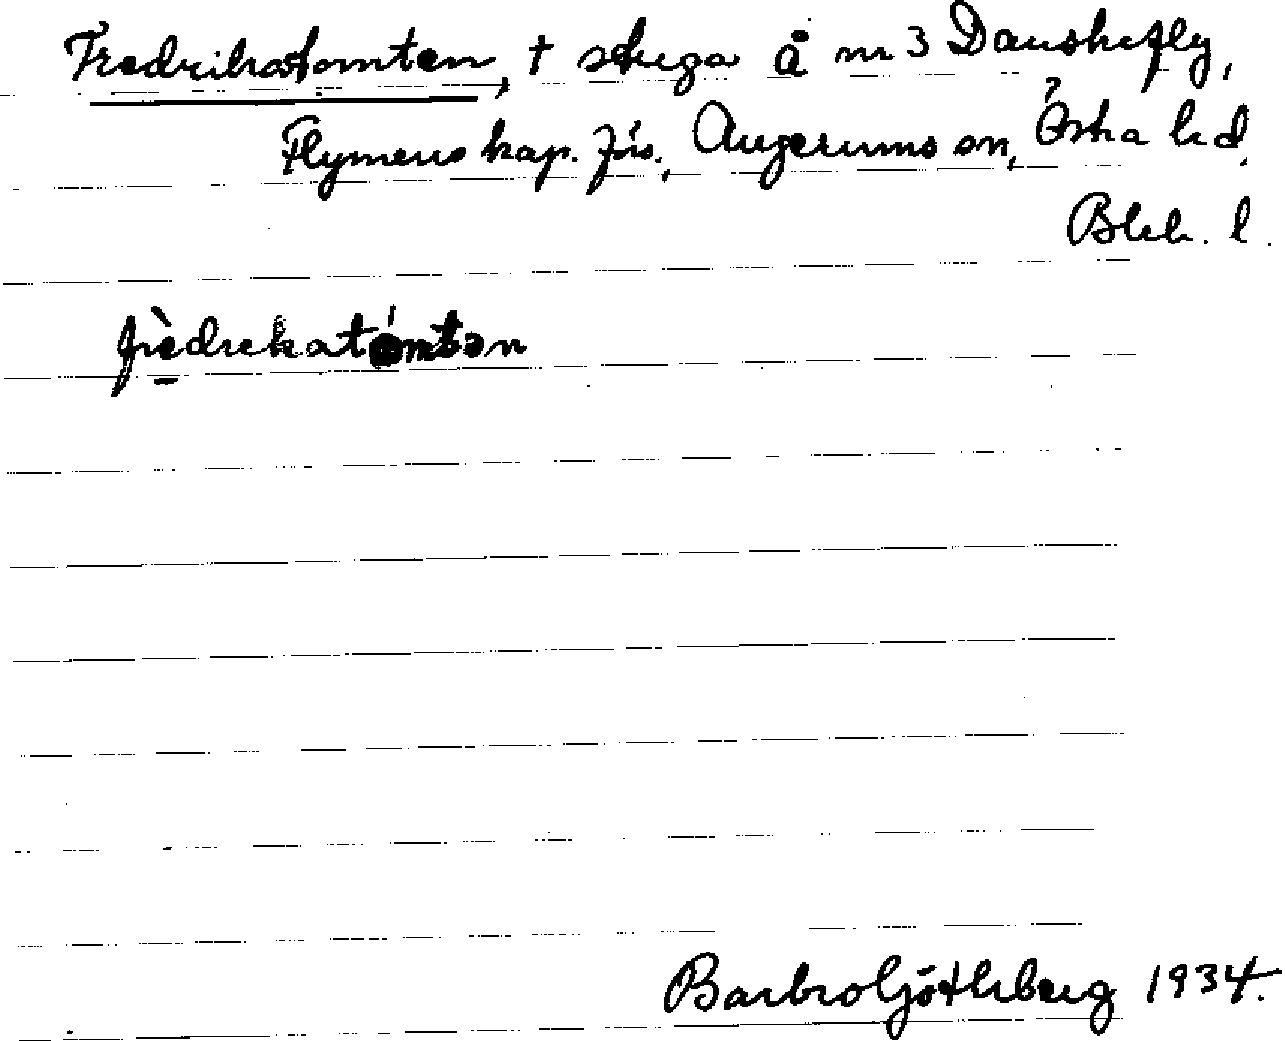 Fredrikatomten, † stuga å nr 3 Danskefly,
Flymens kap. förs., Augerums sn, Östra hd,
Blek. l.
frèdrekatómtən
Barbro Götherberg 1934.